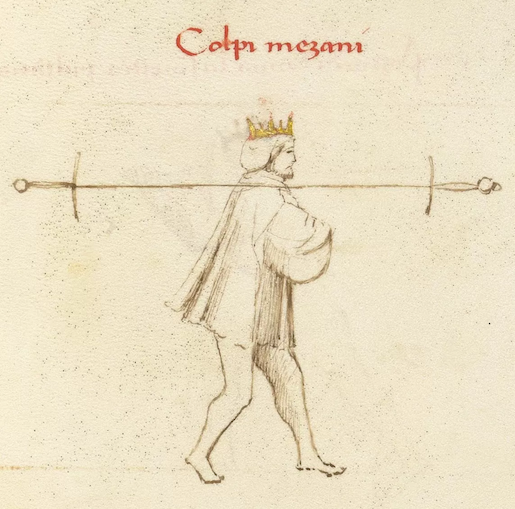 Colpi mezani